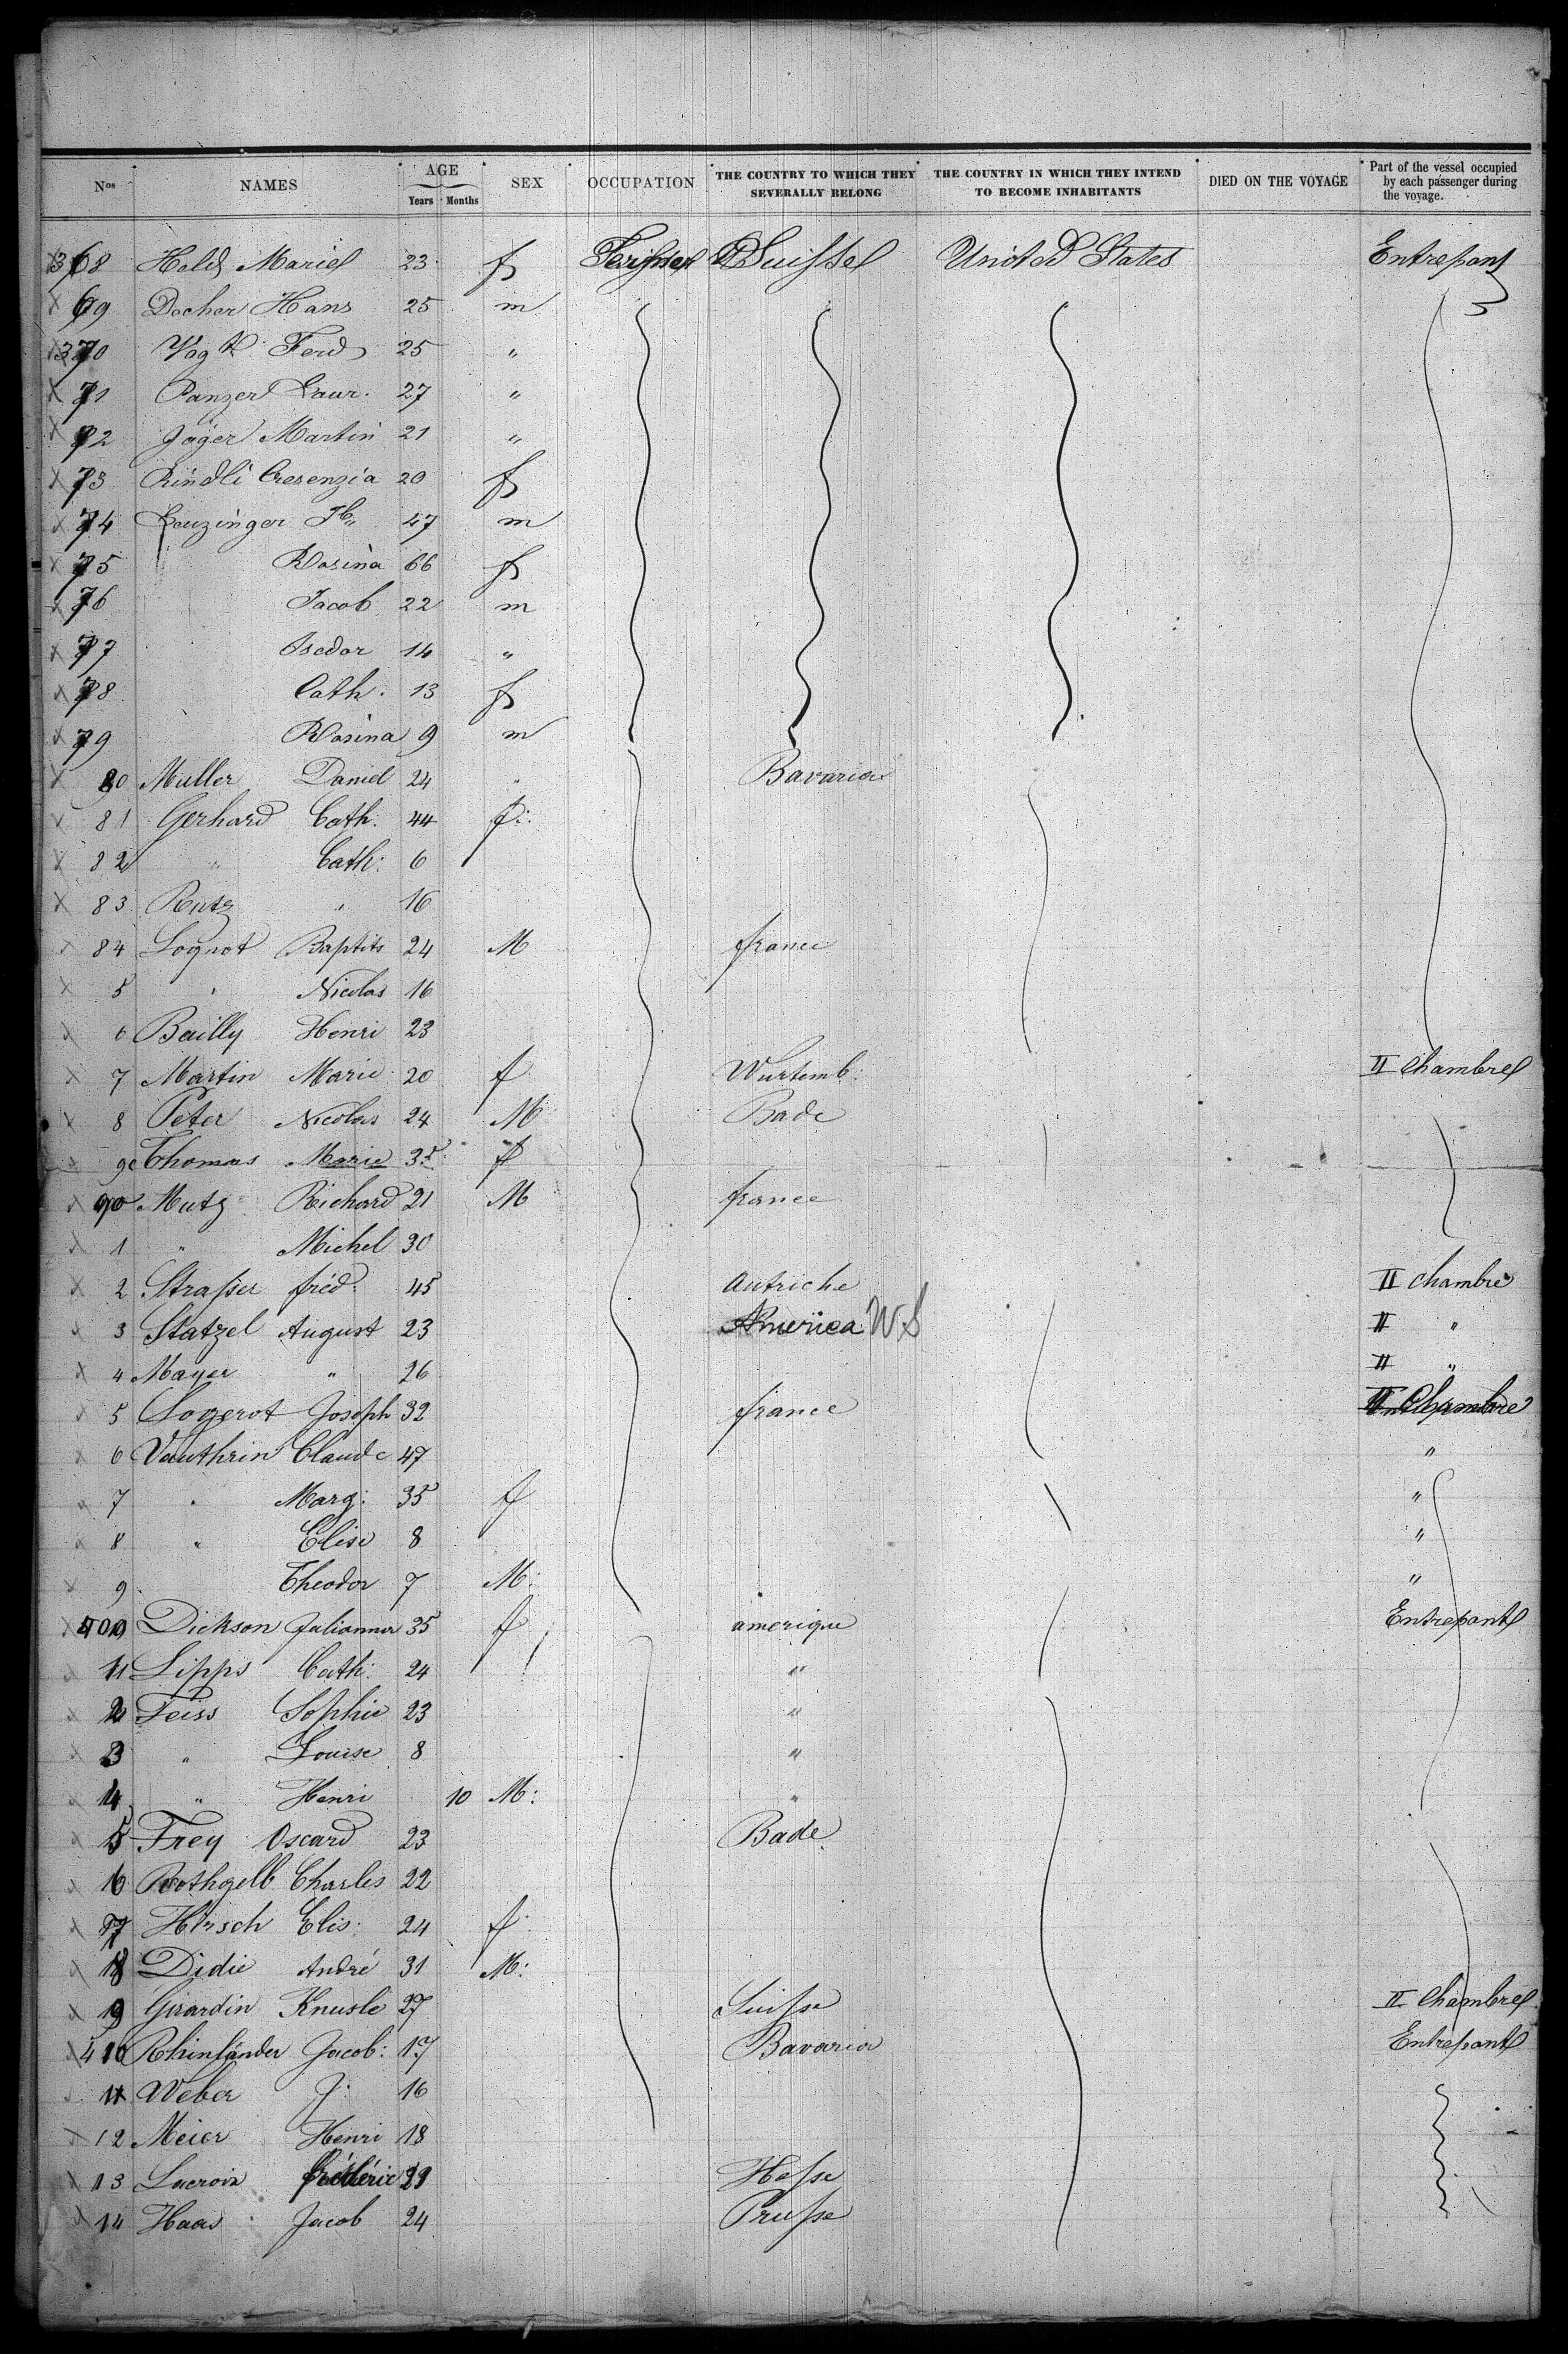 Nos NAMES AGE Years Months SEX OCCUPATION THE COUNTRY TO WHICH THEY SEVERALLY BELONG THE COUNTRY IN WHICH THEY INTEND TO BECOME INHABITANTS DIED ON THE VOYAGE Part of the vessel occupied by each passenger during the voyage.
368 Held Marie 23 f Suisse United States Entrepont
69 Docher Hans 25 m
370 Vogt Ferd 25 "
71 Panzer Laur. 27 "
72 Jäger Martin 21 "
73 Rindli Cresenzia 20 f
74 Leuzinger 47 m
75 Rosina 66 f
76 Jacob 22 m
77 Isedor 14 "
78 Cath. 13 f
79 Rosina 9 m
80 Muller Daniel 24 " Bavaria
81 Gerhard Cath: 44 f:
82 " Cath: 6
83 Rutz " 16
84 Lognot Baptits 24 M france
5 " Nicolas 16
6 Bailly Henri 23
7 Martin Marie 20 f Wurtemb: II Chambre
8 Peter Nicolas 24 M Bade
9 Thomas Marie 35 f
90 Mutz Richard 21 M france
1 " Michel 30
2 Strasser fréd: 45 Autriche II chambre
3 Statzel August 23 America II "
4 Mayer " 26 II "
5 Logerot Joseph 32 france II Chambre
6 Vauthrin Claude 47 "
7 " Marg: 35 f "
8 " Elise 8 "
9 Theodor 7 M: "
400 Dickson Julianna 35 f amerique Entrepont
1 Lipps Cath: 24 "
2 Feiss Sophie 23 "
3 " Louise 8 "
4 " Henri 10 M: "
5 Frey Oscard 23 Bade
6 Rothgelb Charles 22
7 Hirsch Elis: 24 f
8 Didie André 31 M:
9 Girardin Knusle 27 Suisse II Chambre
410 Rhinländer Jacob: 17 Bavaria Entrepont
11 Weber J: 16
12 Meier Henri 18
13 Lacroix frédéric Hesse
14 Haas Jacob 24 Prusse